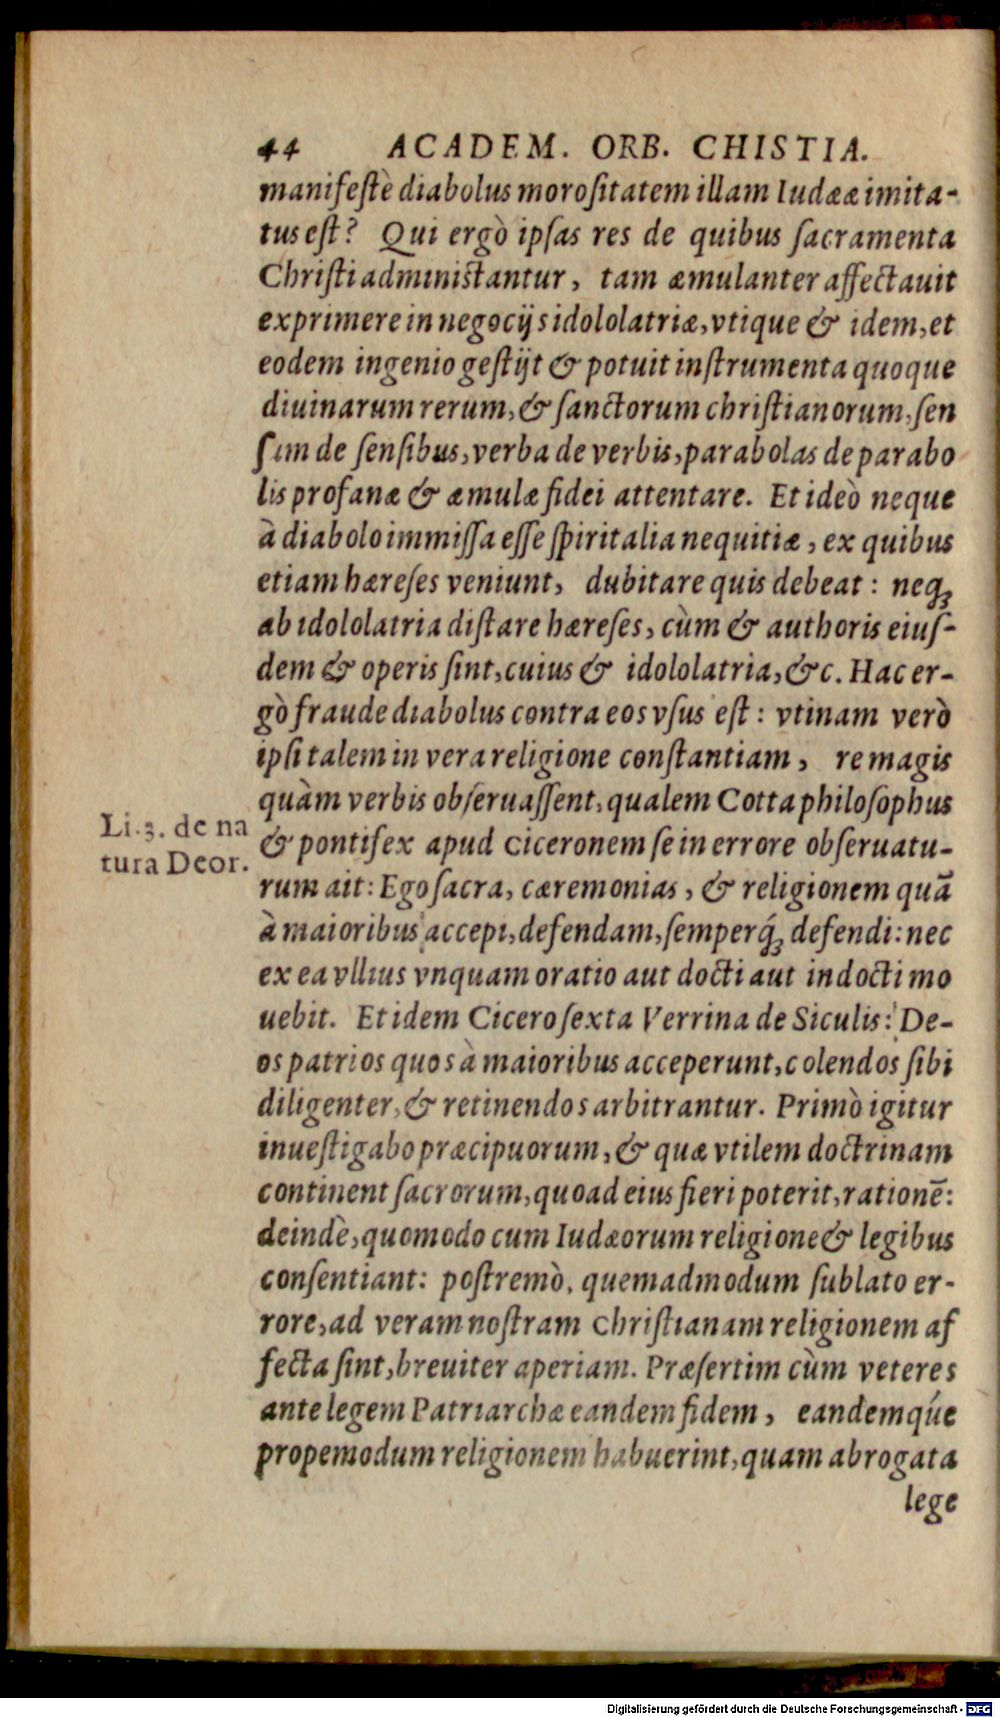 44 ACADEM. ORB. CHISTIA.
manifeſtè diabolus moroſitatem illam Iudææ imita-
tus est? Qui ergò ipſas res de quibus ſacramenta
Chriſti administantur, tam æmulanter affectauit
exprimere in negocijs idololatriæ, vtique & idem, et
eodem ingenio geſtijt & potuit inſtrumenta quoque
diuinarum rerum, & ſanctorum chriſtianorum, ſen
ſum de ſenſibus, verba de verbis, parabolas de parabo
lis profanæ & æmulæ fidei attentare. Et ideò neque
à diabolo immiſſa eſſe ſpiritalia nequitiæ, ex quibus
etiam hæreſes veniunt, dubitare quis debeat: neq;
ab idololatria diſtare hæreſes, cùm & authoris eiuſ-
dem & operis ſint, cuius & idololatria, &c. Hac er-
gò fraude diabolus contra eos vſus eſt: vtinam verò
ipſi talem in vera religione conſtantiam, re magis
quàm verbis obſeruaſſent, qualem Cotta philoſophus
& pontifex apud Ciceronem ſe in errore obſeruatu-
rum ait: Ego ſacra, cæremonias, & religionem quā
à maioribus accepi, defendam, ſemperq́; defendi: nec
ex ea vllius vnquam oratio aut docti aut indocti mo
uebit. Et idem Cicero ſexta Verrina de Siculis: De-
os patrios quos à maioribus acceperunt, colendos ſibi
diligenter, & retinendos arbitrantur. Primò igitur
inueſtigabo præcipuorum, & quæ vtilem doctrinam
continent ſacrorum, quoad eius fieri poterit, rationē:
deindè, quomodo cum Iudæorum religione & legibus
conſentiant: poſtremò, quemadmodum ſublato er-
rore, ad veram noſtram Chriſtianam religionem af
fecta ſint, breuiter aperiam. Præſertim cùm veteres
ante legem Patriarchæ eandem fidem, eandemqúe
propemodum religionem habuerint, quam abrogata
lege
Li. 3. de na
tura Deor.
Digitalisierung gefördert durch die Deutsche Forschungsgemeinschaft - DFG